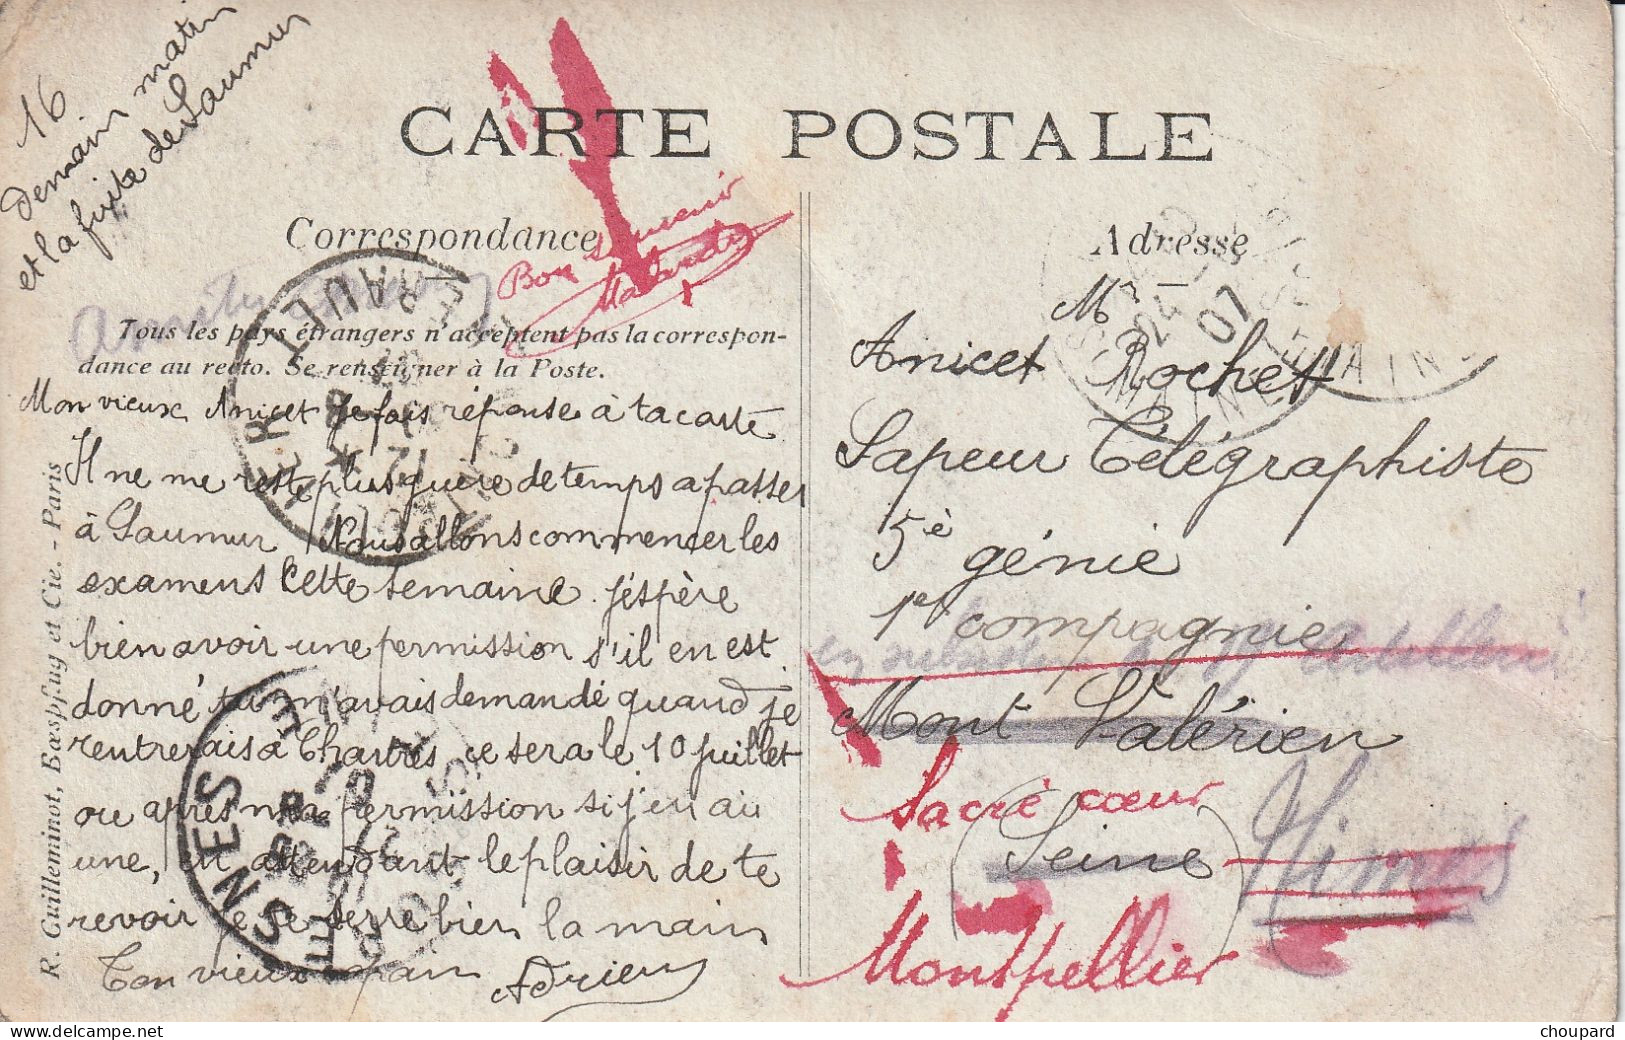 16
Demain matin
et la fuite de Saumur
CARTE POSTALE
Correspondance
Bon souvenir
Adresse
Tous les pays étrangers n'acceptent pas la correspon-
dance au recto. Se renseigner à la Poste.
Mon vieux Anicet Je fais réponse à ta carte
Il ne me reste plus guère de temps a passer
à Saumur Nous allons commencer les
examens Cette semaine. J'éspère
bien avoir une permission s'il en est
donné tu m'avais demandé quand je
rentrerais à Chartres ce sera le 10 juillet
ou après ma permission si j'en ai
une, en attendant le plaisir de te
revoir je te serre bien la main
Ton vieux copain Adrien
R. Guilleminot, Bœspflug et Cie. - Paris
Mr
Anicet Rochet
Sapeur Télégraphiste
5è génie
1e compagnie
Mont Valérien
Sacré cœur
Seine
Nimes
Montpellier
24
07
choupard
www.delcampe.net